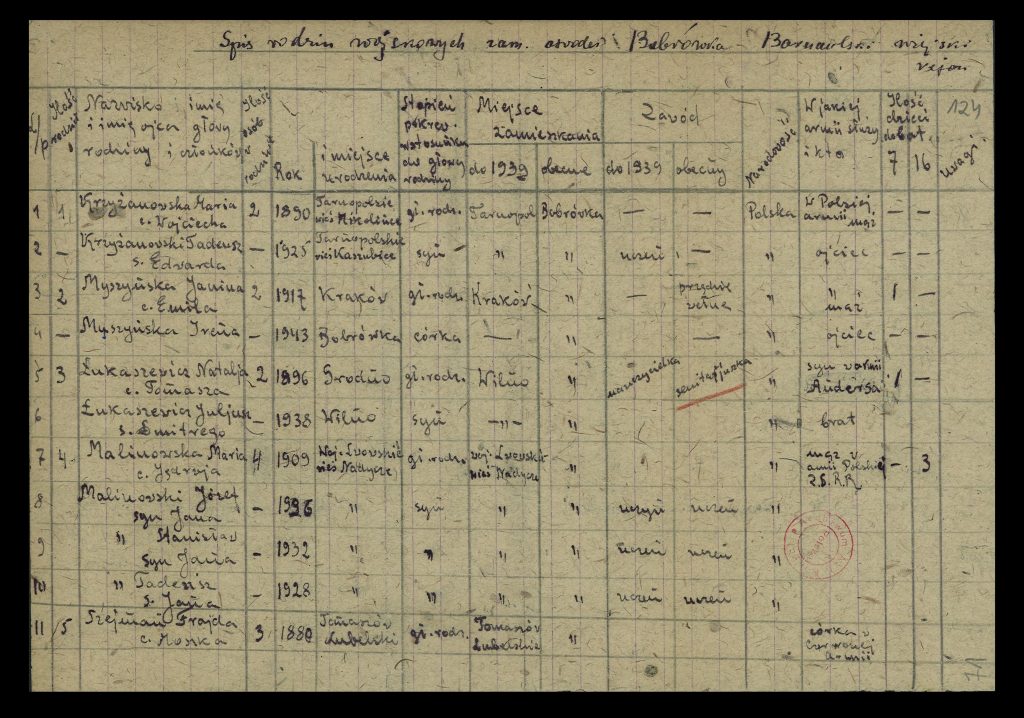 Spis rodzin wojskowych zam. osvodeś Bobrówka - Barnaulski wiejski
rejon
L/p Ilość rodzin Nazwisko i imię Ilość osób w rodzinie Rok i miejsce urodzenia Stopień pokrew. w stosunku do głowy rodziny Miejsce zamieszkania Zawód Narodowość W jakiej armii służy i kto Ilość dzieci do lat 124
i imię ojca głowy
rodziny i członków do 1939 obecne do 1939 obecny 7 16 uwagi
1 1 Krzyżanowska Maria 2 1890 Tarnopolskie gł. rodz. Tarnopol Bobrówka — — Polska w Polskiej — —
c. Wojciecha wieś Mikolińce armii mąż
2 — Krzyżanowski Tadeusz — 1925 Tarnopolskie syn " " uczeń — " ojciec — —
s. Edvarda wieś Kaszubice
3 2 Myszyńska Janina 2 1917 Kraków gł. rodz. Kraków " — przędnie " " 1 —
c. Emila wełne mąż
4 — Myszyńska Irena — 1943 Bobrówka córka — " — " ojciec — —
5 3 Łukaszewicz Natalja 2 1896 Grodno gł. rodz. Wilno " nauczycielka sanitarjuszka " syn w armii 1 —
c. Tomasza Andersa
6 Łukaszewicz Juljusz — 1938 Wilno syn —"— " " brat
s. Dmitrego
7 4 Malinowska Maria 4 1909 Woj. Lwowskie gł. rodz. woj. Lwowskie " " mąż w - 3
c. Jędrzeja wieś Nadycze wieś Nadycze armii Polskiej
Z.S.R.R.
8 Malinowski Józef — 1926 " syn " " uczeń uczeń "
syn Jana
9 " Stanisław — 1932 " " " " uczeń uczeń "
syn Jana
10 " Tadeusz — 1928 " " " " uczeń uczeń "
s. Jana
11 5 Szejman Frajda 3 1880 Tomaszów gł. rodz. Tomaszów " córka w
c. Moszka Lubelski Lubelskie czerwonej
armii
77